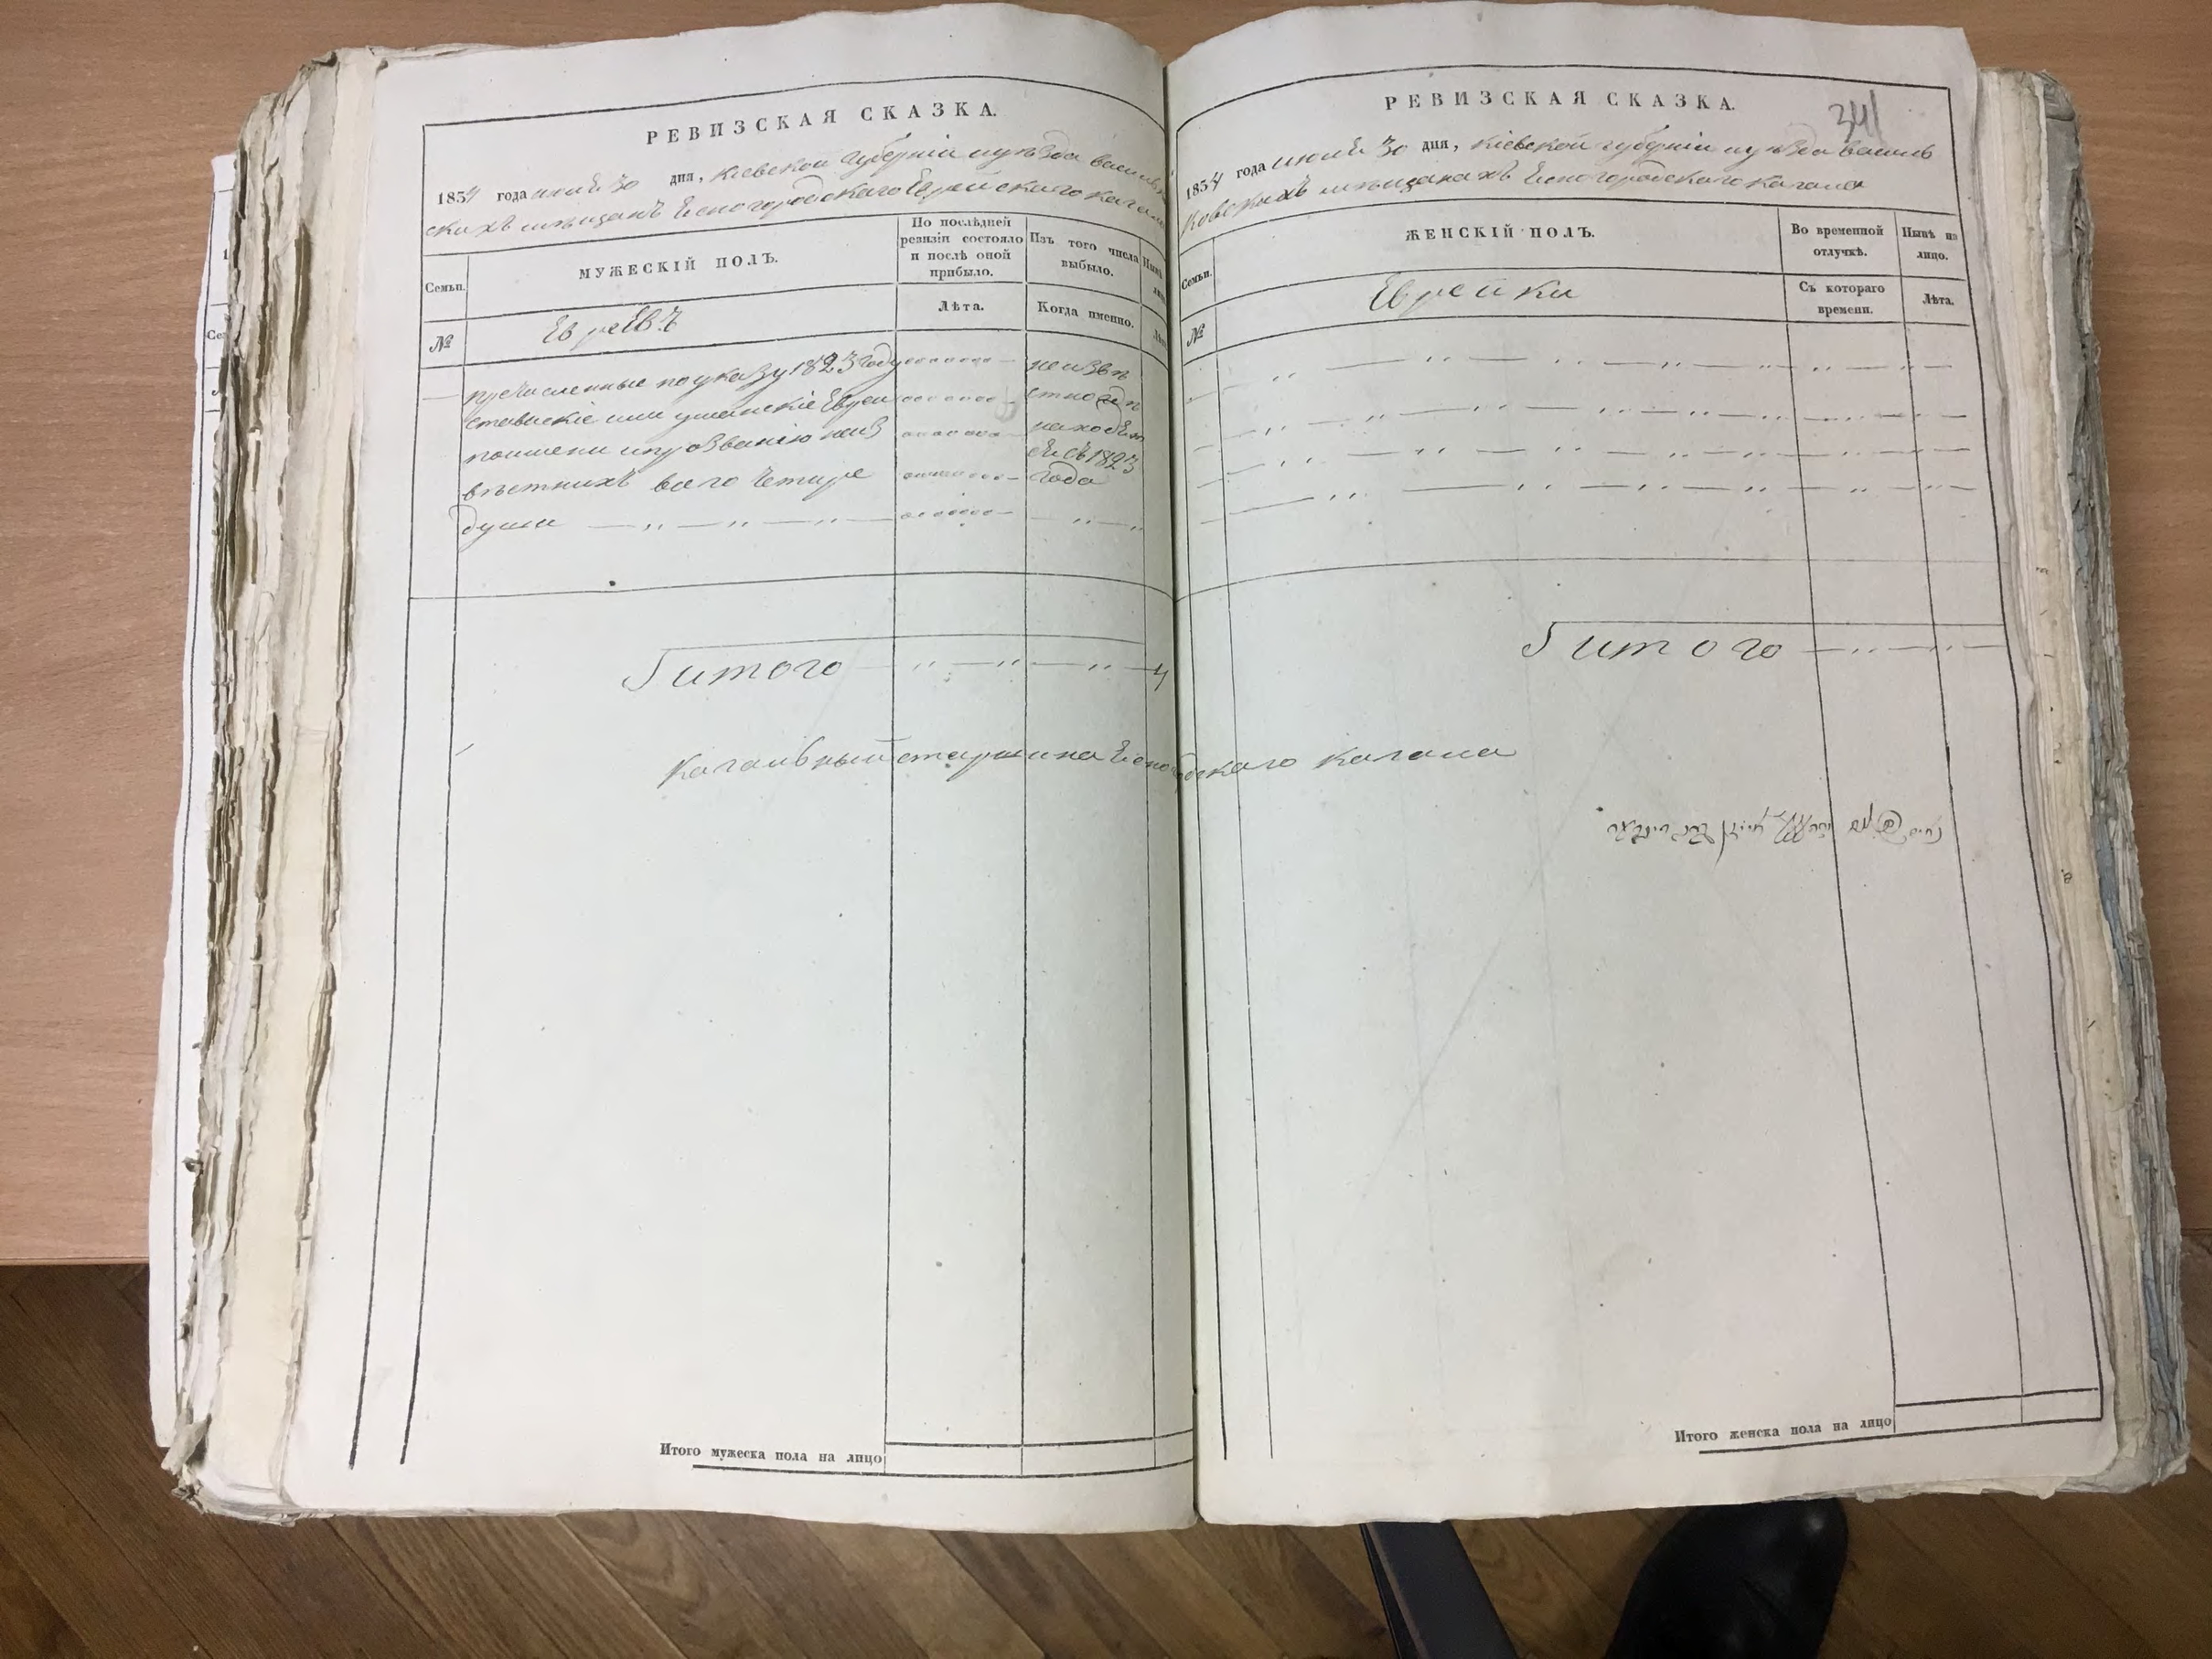 РЕВИЗСКАЯ СКАЗКА.
1834 года июня 30 дня, Кіевской губерніи уѣзда василь
скихъ мѣщанъ Есногородскаго Еврейскаго кагала
Семьи.
МУЖЕСКІЙ ПОЛЪ.
По послѣдней ревизіи состояло и послѣ оной прибыло.
Изъ того числа выбыло.
№
Евреевъ
Лѣта.
Когда именно.
Лѣта
по указу 1823 году
неизвѣ
Евреи
стно гдѣ
по имени и прозванію неиз
находят
ся съ 1823
вѣстнихъ всего четире
года
души
Итого 4
Кагальный старшина Есногородскаго кагала
Итого мужеска пола на лицо
РЕВИЗСКАЯ СКАЗКА.
341
1834 года июня 30 дня, Кіевской губерніи уѣзда василь
ковскихъ мѣщанахъ Есногородскаго кагала
Семьи.
ЖЕНСКІЙ ПОЛЪ.
Во временной отлучкѣ.
Нынѣ на лицо.
№
Еврейки
Съ котораго времени.
Лѣта.
Итого
Итого женска пола на лицо